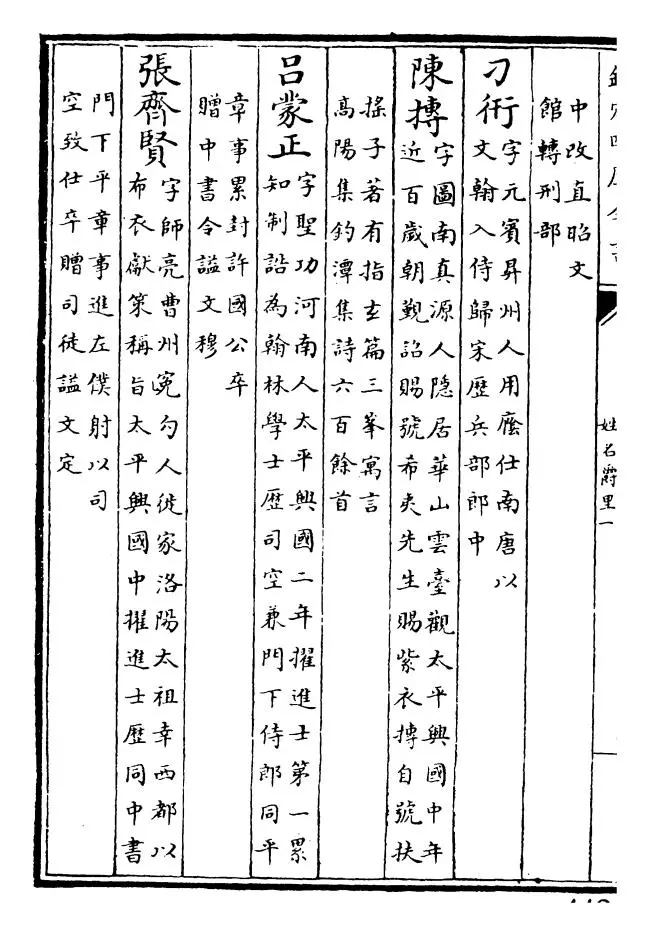 姓名爵里一
中改直昭文
館轉刑部
刁衎
字元賓昇州人用廕仕南唐以
文翰入侍歸宋歷兵部郎中
陳摶
字圖南真源人隱居華山雲臺觀太平興國中年
近百歲朝覲詔賜號希夷先生賜紫衣摶自號扶
搖子著有指玄篇三峯寓言
高陽集釣潭集詩六百餘首
呂蒙正
字聖功河南人太平興國二年擢進士第一累
知制誥為翰林學士歷司空兼門下侍郎同平
章事累封許國公卒
贈中書令諡文穆
張齊賢
字師亮曹州寃勾人徙家洛陽太祖幸西都以
布衣獻策稱旨太平興國中擢進士歷同中書
門下平章事進左僕射以司
空致仕卒贈司徒諡文定